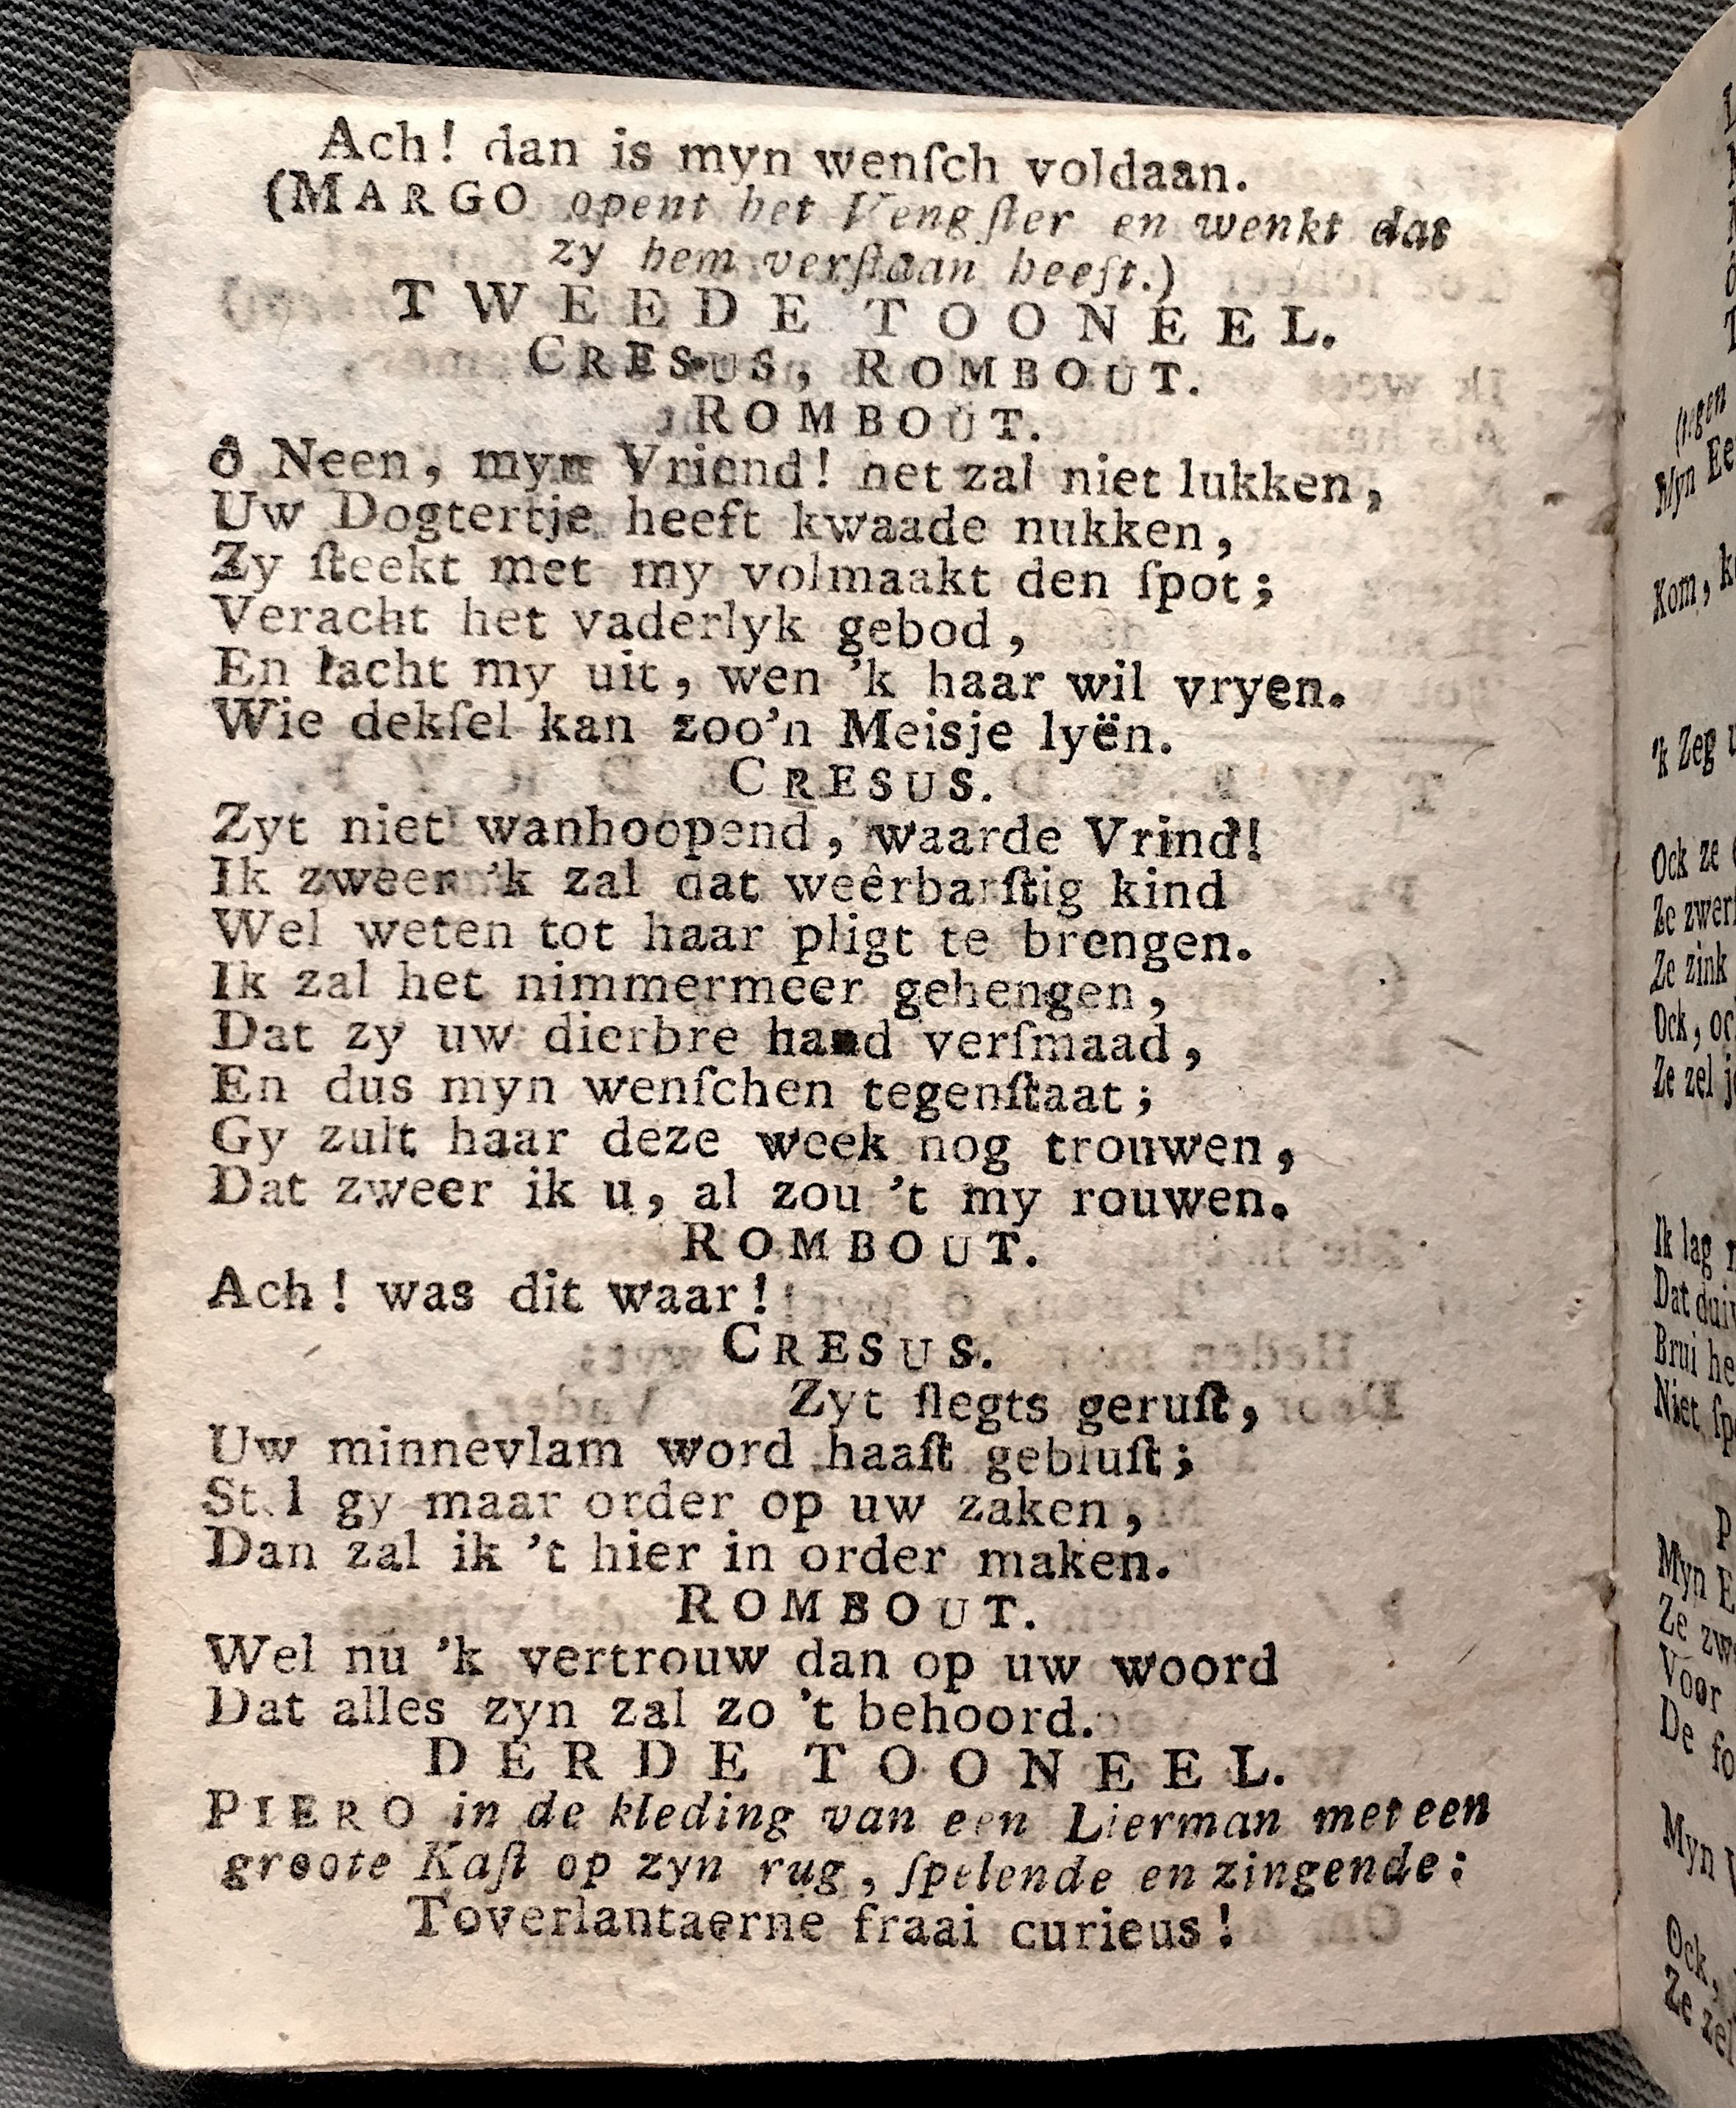 Ach! dan is myn wenſch voldaan.
(MARGO opent het Vengſter en wenkt dat
zy hem verſtaan heeft.)
TWEEDE TOONEEL.
CRESUS, ROMBOUT.
ROMBOUT.
ô Neen, myn Vriend! het zal niet lukken,
Uw Dogtertje heeft kwaade nukken,
Zy ſteekt met my volmaakt den ſpot;
Veracht het vaderlyk gebod,
En lacht my uit, wen 'k haar wil vryen.
Wie dekſel kan zoo'n Meisje lyën.
CRESUS.
Zyt niet wanhoopend, waarde Vrind!
Ik zweer 'k zal dat weêrbarſtig kind
Wel weten tot haar pligt te brengen.
Ik zal het nimmermeer gehengen,
Dat zy uw dierbre hand verſmaad,
En dus myn wenſchen tegenſtaat;
Gy zult haar deze week nog trouwen,
Dat zweer ik u, al zou 't my rouwen.
ROMBOUT.
Ach! was dit waar!
CRESUS.
Zyt ſlegts geruſt,
Uw minnevlam word haaſt gebluſt;
Stel gy maar order op uw zaken,
Dan zal ik 't hier in order maken.
ROMBOUT.
Wel nu 'k vertrouw dan op uw woord
Dat alles zyn zal zo 't behoord.
DERDE TOONEEL.
PIERO in de kleding van een Lierman met een
groote Kaſt op zyn rug, ſpelende en zingende:
Toverlantaerne fraai curieus!
(tegen
Myn Ee
Kom, k
'k Zeg u
Ock ze
Ze zwer
Ze zink
Ock, oc
Ze zel j
Ik lag
Dat dui
Brui he
Niet ſp
P
Myn E
Ze zw
Voor
De ſo
Myn
Ock,
Ze zel